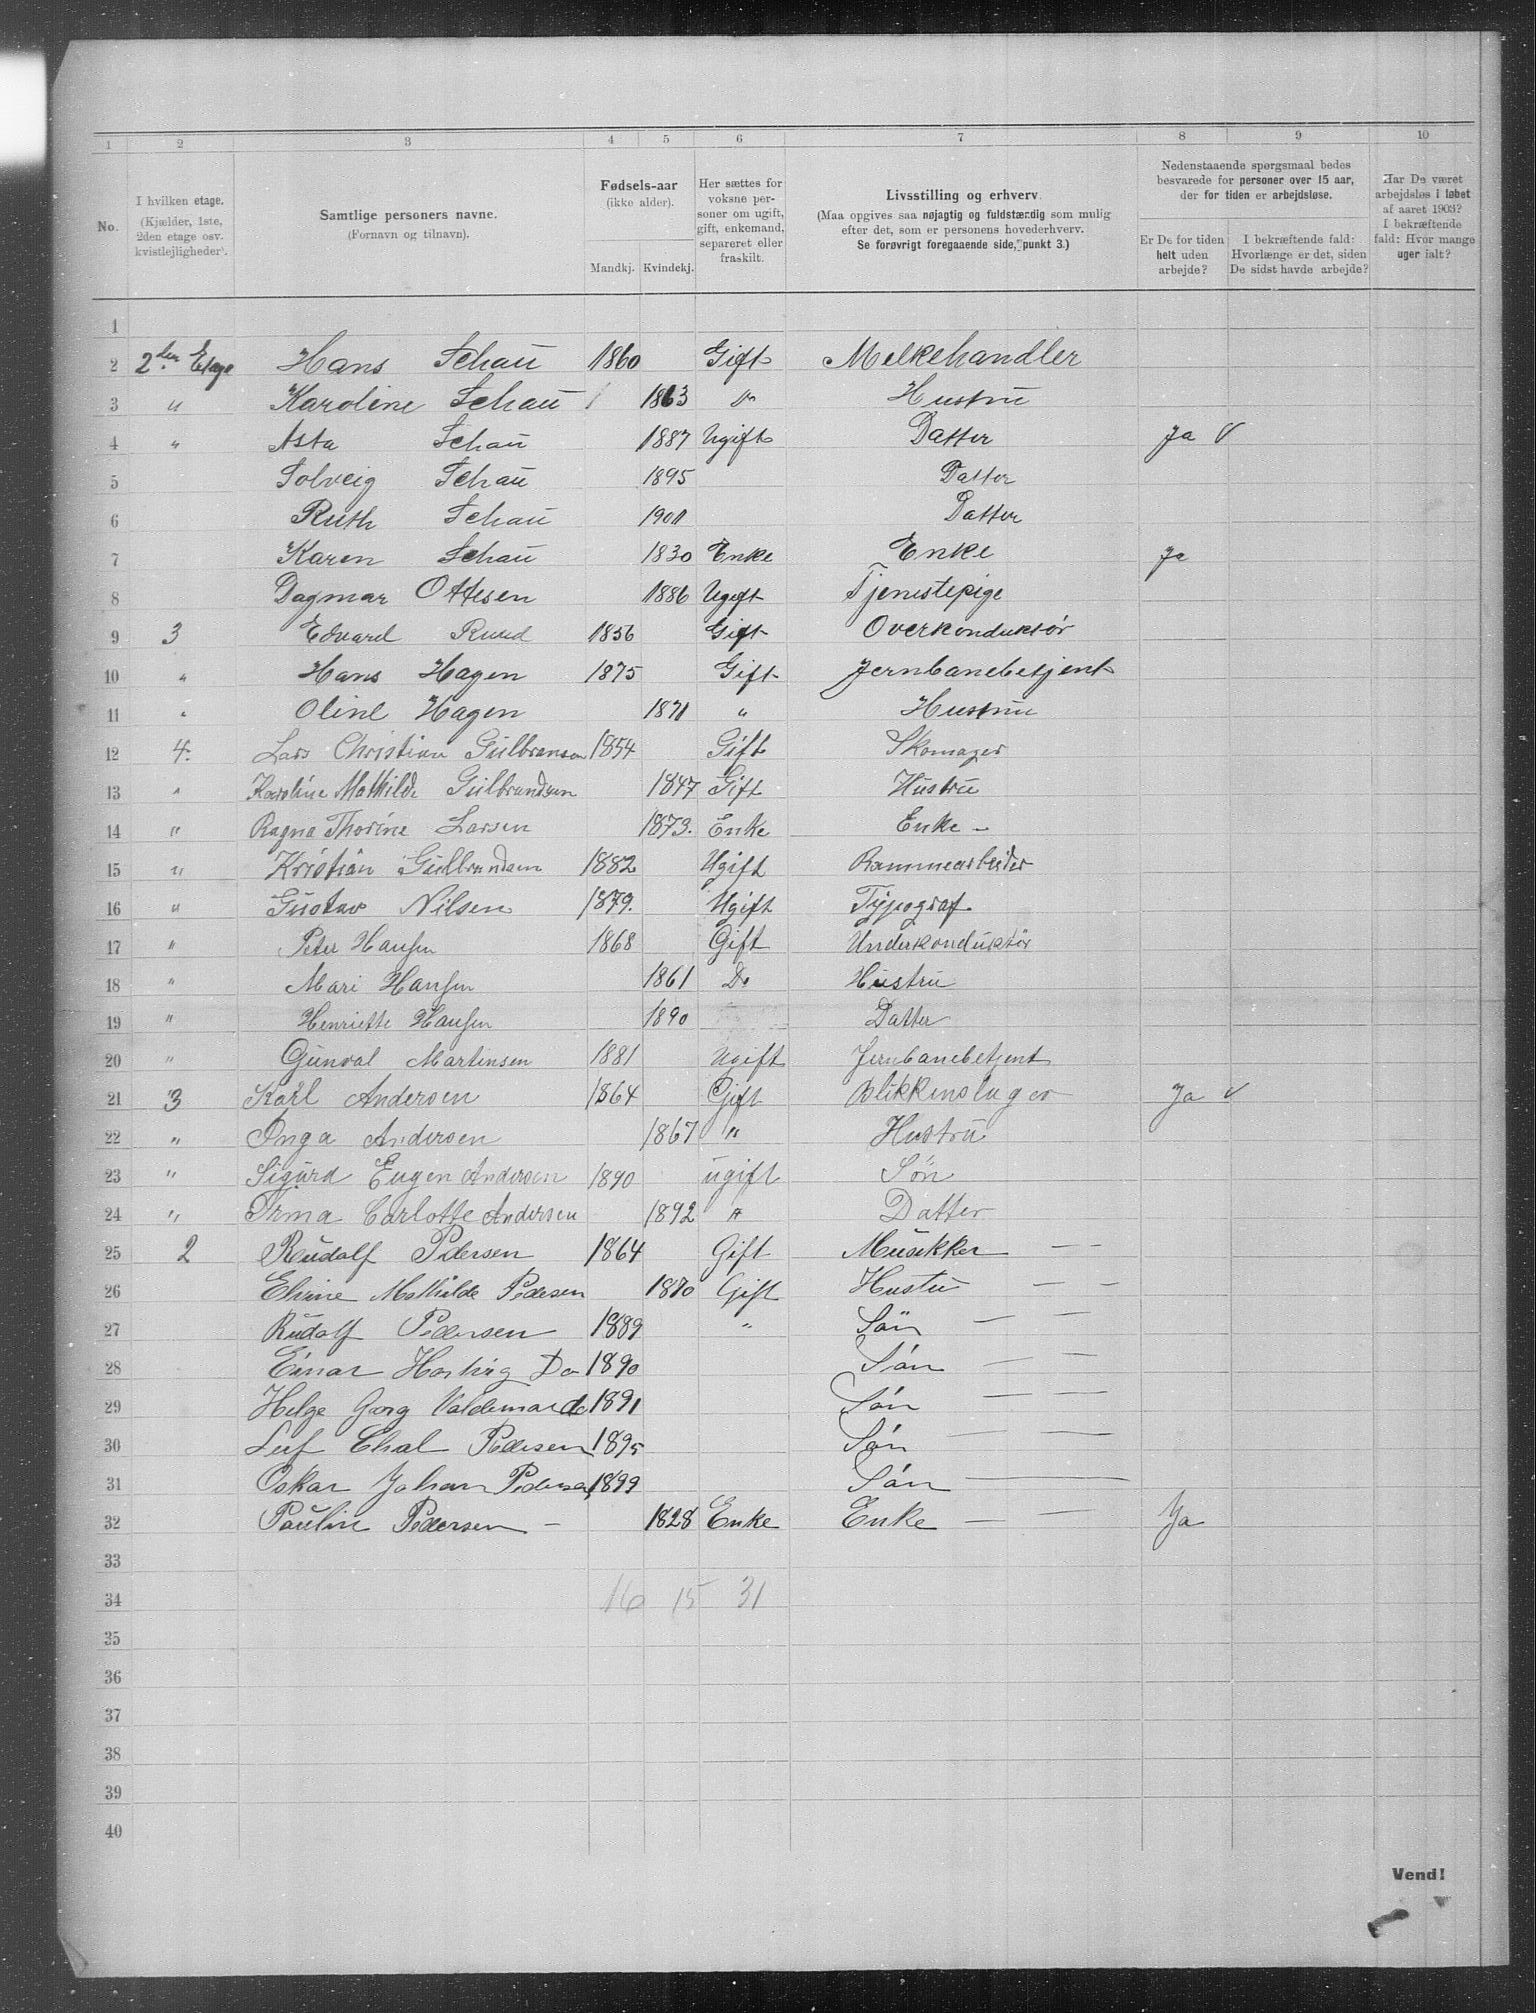 1 2 3 4 5 6 7 8 9 10
No.
I hvilken etage.
(Kjælder, 1ste,
2den etage osv.
kvistlejligheder).
Samtlige personers navne.
(Fornavn og tilnavn).
Fødsels-aar
(ikke alder).
Mandkj. Kvindekj.
Her sættes for
voksne per-
soner om ugift,
gift, enkemand,
separeret eller
fraskilt.
Livsstilling og erhverv
(Maa opgives saa nøjagtig og fuldstændig som mulig
efter det, som er personens hovederhverv.
Se forøvrigt foregaaende side, punkt 3.)
Nedenstaaende spørgsmaal bedes
besvarede for personer over 15 aar,
der for tiden er arbejdsløse.
Er De for tiden
helt uden
arbejde?
I bekræftende fald:
Hvorlænge er det, siden
De sidst havde arbejde?
Har De været
arbejdsløs i løbet
af aaret 1903?
I bekræftende
fald: Hvor mange
uger ialt?
1
2 2den Etage Hans Schau 1860 Gift Melkehandler
3 " Karoline Schau 1863 Do Hustru
4 " Asta Schau 1887 Ugift Datter Ja V
5 Solveig Schau 1895 Datter
6 Ruth Schau 1901 Datter
7 Karen Schau 1830 Enke Enke Ja
8 Dagmar Ottesen 1886 Ugift Tjenestepige
9 3 Edvard Ruud 1856 Gift Overkonduktør
10 " Hans Hagen 1875 Gift Jernbanebetjent
11 " Oline Hagen 1871 " Hustru
12 4. Lars Christian Gulbransen 1854 Gift Skomager
13 " Karoline Mathilde Gulbrandsen 1847 Gift Hustru
14 " Ragna Thorine Larsen 1873. Enke Enke –
15 " Kristian Gulbrandsen 1882 Ugift Rammearbeider
16 " Gustav Nilsen 1879. Ugift Typograf
17 " Peter Hansen 1868 Gift Underkonduktør
18 " Mari Hansen 1861 Do Hustru
19 " Henriette Hansen 1890 Datter
20 " Gunval Martinsen 1881 Ugift Jernbanebetjent
21 3 Karl Andersen 1864 Gift Blikkenslager Ja V
22 " Inga Andersen 1867 " Hustru
23 " Sigurd Eugen Andersen 1890 ugift Søn
24 " Irma Carlotte Andersen 1892 " Datter
25 2 Rudolf Pedersen 1864 Gift Musikker — —
26 Eline Mathilde Pedesen 1870 Gift Hustu — —
27 Rudolf Pedersen 1889 " Søn — —
28 Einar Do 1890 Søn — —
29 Helge Georg Valdemar do 1891 Søn — —
30 Leif Pedersen 1895 Søn — — —
31 Oskar Johan Pedersen 1899 Søn — —
32 Paulin Pedersen – 1828 Enke Enke — — Ja
33
34 16 15 31
35
36
37
38
39
40
Vend!